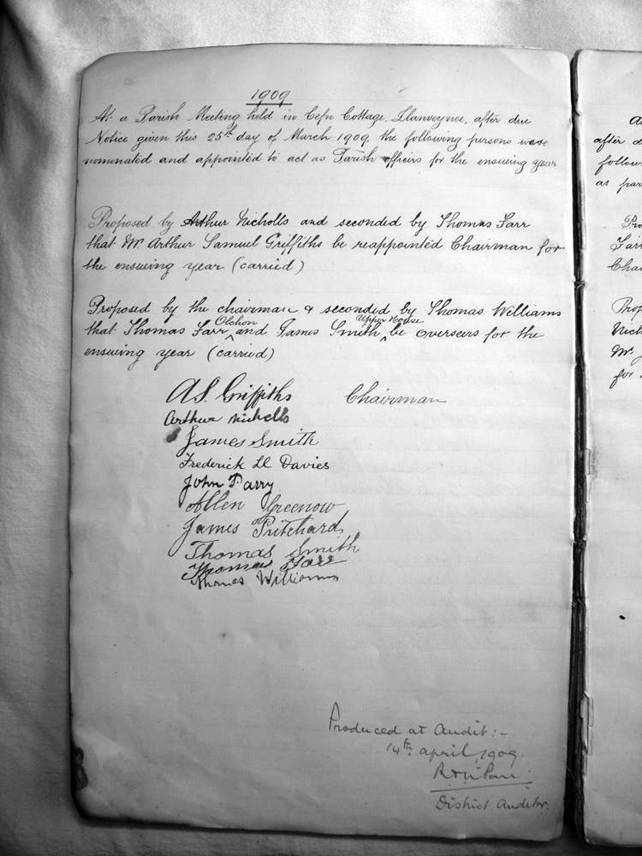 1909
At a Parish Meeting held in Cefn Cottage, Llanveynoe, after due
Notice given this 25th day of March 1909, the following persons were
nominated and appointed to act as Parish officers for the ensuing year
Proposed by Arthur Nicholls and seconded by Thomas Farr
that Mr Arthur Samuel Griffiths be reappointed Chairman for
the ensuing year (carried)
Proposed by the chairman & seconded by Thomas Williams
Olchon Upper House
that Thomas Farr ^ and James Smith ^ be overseers for the
ensuing year (carried)
A.S. Griffiths Chairman
Arthur Nicholls
James Smith
Frederick Ll Davies
John Parry
Allen Greenow
James Pritchard
Thomas Smith
Thomas Farr
Thomas Williams
Produced at Audit:-
14th April, 1909.
District Auditor.
after d
follow
as par
Pro
Farr
Chai
Prop
Nich
Mr
for